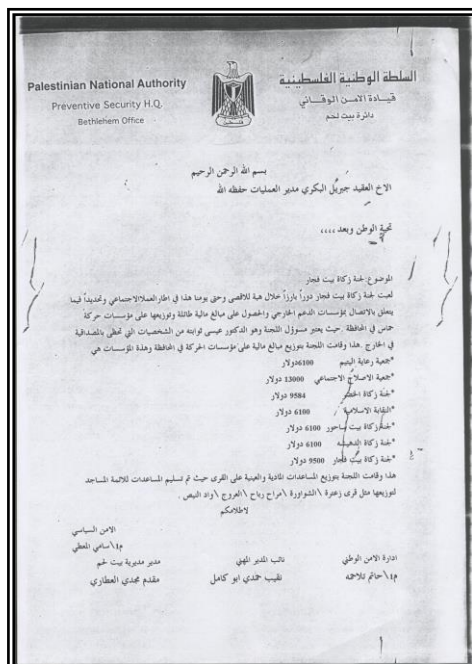 Palestinian National Authority
Preventive Security H.Q.
Bethlehem Office
السلطة الوطنية الفلسطينية
قيادة الامن الوقائي
دائرة بيت لحم
فلسطين
بسم الله الرحمن الرحيم
الاخ العقيد جبريل البكري مدير العمليات حفظه الله
تحية الوطن وبعد ,,,,
الموضوع: لجنة زكاة بيت فجار
لعبت لجنة زكاة بيت فجار دوراً بارزاً خلال هبة للاقصى وحتى يومنا هذا في اطار العمل الاجتماعي وتحديداً فيما
يتعلق بالاتصال بمؤسسات الدعم الخارجي والحصول على مبالغ مالية طائلة وتوزيعها على مؤسسات حركة
حماس في المحافظة حيث يعتبر مسؤول اللجنة وهو الدكتور عيسى ثوابته من الشخصيات التي تحظى بالمصداقية
في الخارج. هذا وقامت اللجنة بتوزيع مبالغ مالية على مؤسسات الحركة في المحافظة وهذة المؤسسات هي
*جمعية رعاية اليتيم 6100دولار
*جمعية الاصلاح الاجتماعي 13000 دولار
*لجنة زكاة الخضر 9584 دولار
*النقابة الاسلامية 6100 دولار
*لجنة زكاة بيت ساحور 6100 دولار
*لجنة زكاة الدهيشه 6100 دولار
*لجنة زكاة بيت فجار 9500 دولار
هذا وقامت اللجنة بتوزيع المساعدات المادية والعينية على القرى حيث تم تسليم المساعدات للائمة المساجد
لتوزيعها مثل قرى زعترة \الشواورة \مراح رباح \العروج \واد النيص .
لاطلاعكم
الامن السياسي
م1\سامي المعطي
ادارة الامن الوطني
نائب المدير المهني
مدير مديرية بيت لحم
م1\حاتم تلاحمه
نقيب حمدي ابو كامل
مقدم مجدي العطاري